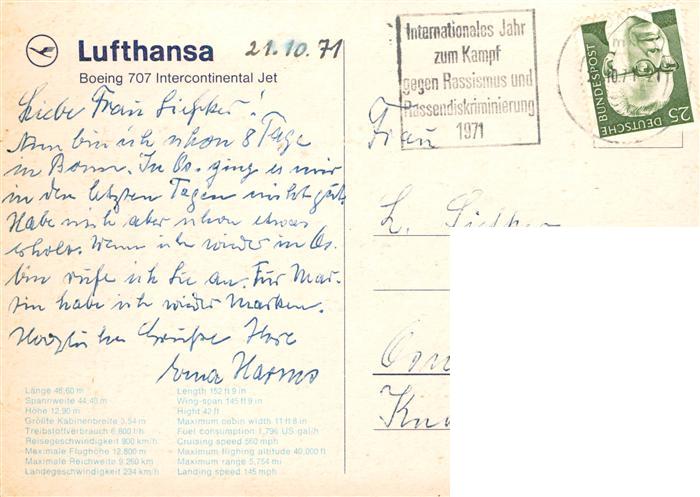 Lufthansa 21.10.71
Boeing 707 Intercontinental Jet
Liebe Frau Siefker!
Nun bin ich schon 8 Tage
in Bonn. In Os. ging es mir
in den letzten Tagen nicht gut.
Habe mich aber schon etwas
erholt. Wenn ich wieder in Os.
bin rufe ich Sie an. Für Mar-
tin habe ich wieder Marken.
Herzliche Grüße Ihre
Erna Harms
Länge 46,60 m
Spannweite 44,40 m
Höhe 12,90 m
Größte Kabinenbreite 3,54 m
Treibstoffverbrauch 6,800 l/h
Reisegeschwindigkeit 900 km/h
Maximale Flughöhe 12,800 m
Maximale Reichweite 9 260 km
Landegeschwindigkeit 234 km/h
Length 152 ft 9 in
Wing-span 145 ft 9 in
Hight 42 ft
Maximum cabin width 11 ft 8 in
Fuel consumption 1,796 US gal/h
Cruising speed 560 mph
Maximum flighing altitude 40,000 ft
Maximum range 5,754 mi
Landing speed 145 mph
Internationales Jahr
zum Kampf
gegen Rassismus und
Rassendiskriminierung
1971
DEUTSCHE
BUNDESPOST
25
Frau
L. Siefker